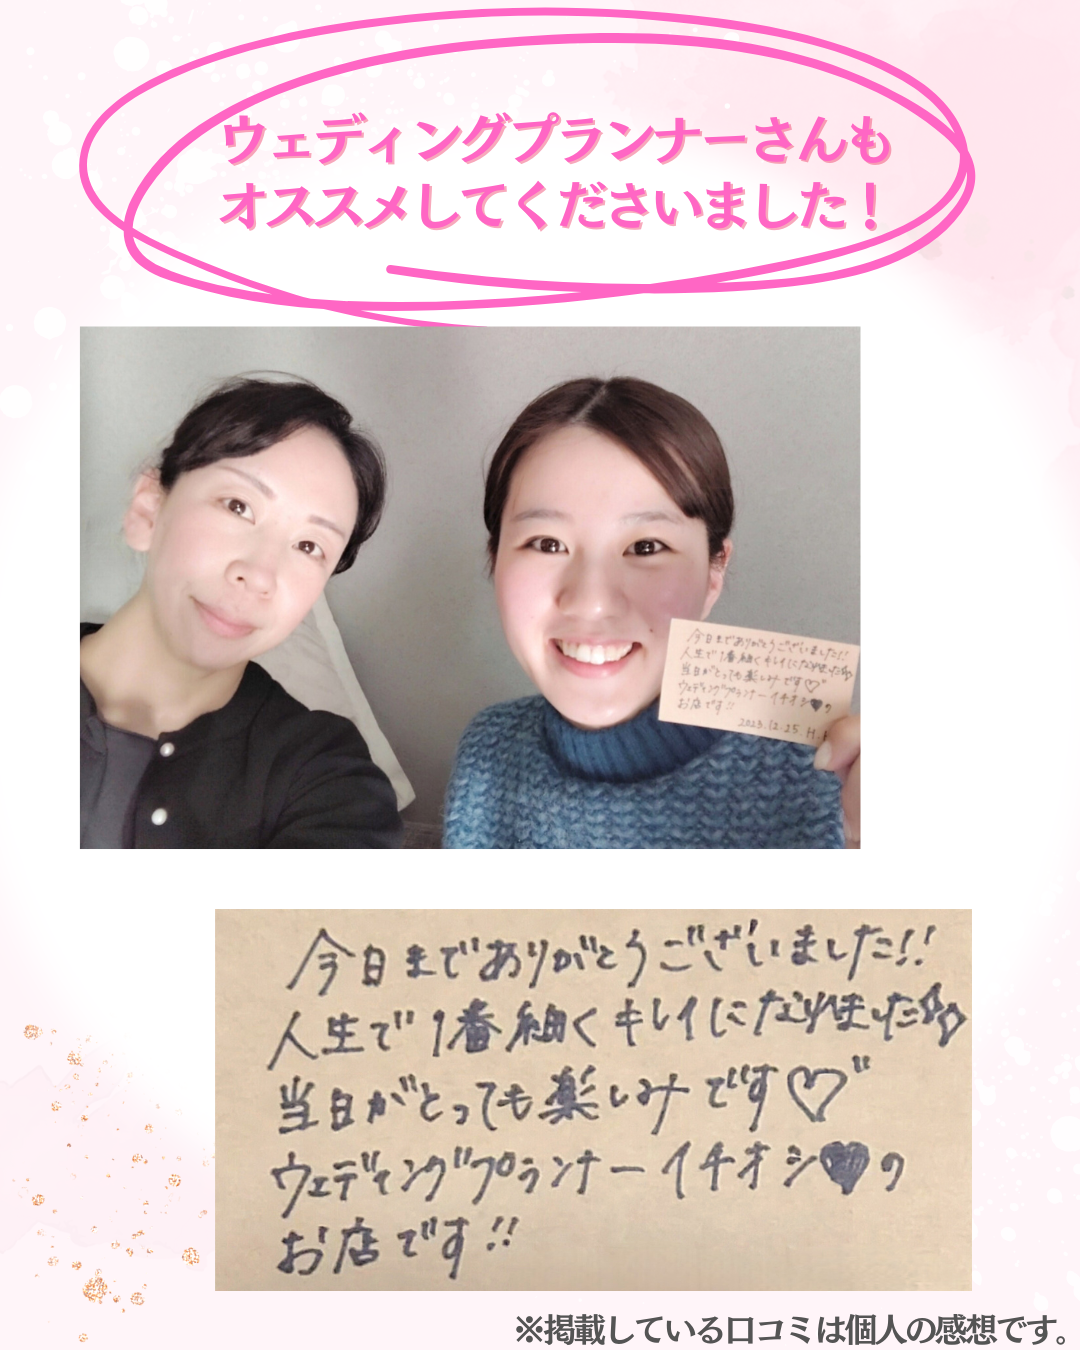 ウェディングプランナーさんも
オススメしてくださいました！
今日までありがとうございました!!
人生で1番細くキレイになれました
当日がとっても楽しみです♡"
ウェディングプランナーイチオシ♥の
お店です!!
2023.12.25.H.
今日までありがとうございました!!
人生で1番細くキレイになれました
当日がとっても楽しみです♡"
ウェディングプランナーイチオシ♥の
お店です!!
※掲載している口コミは個人の感想です。